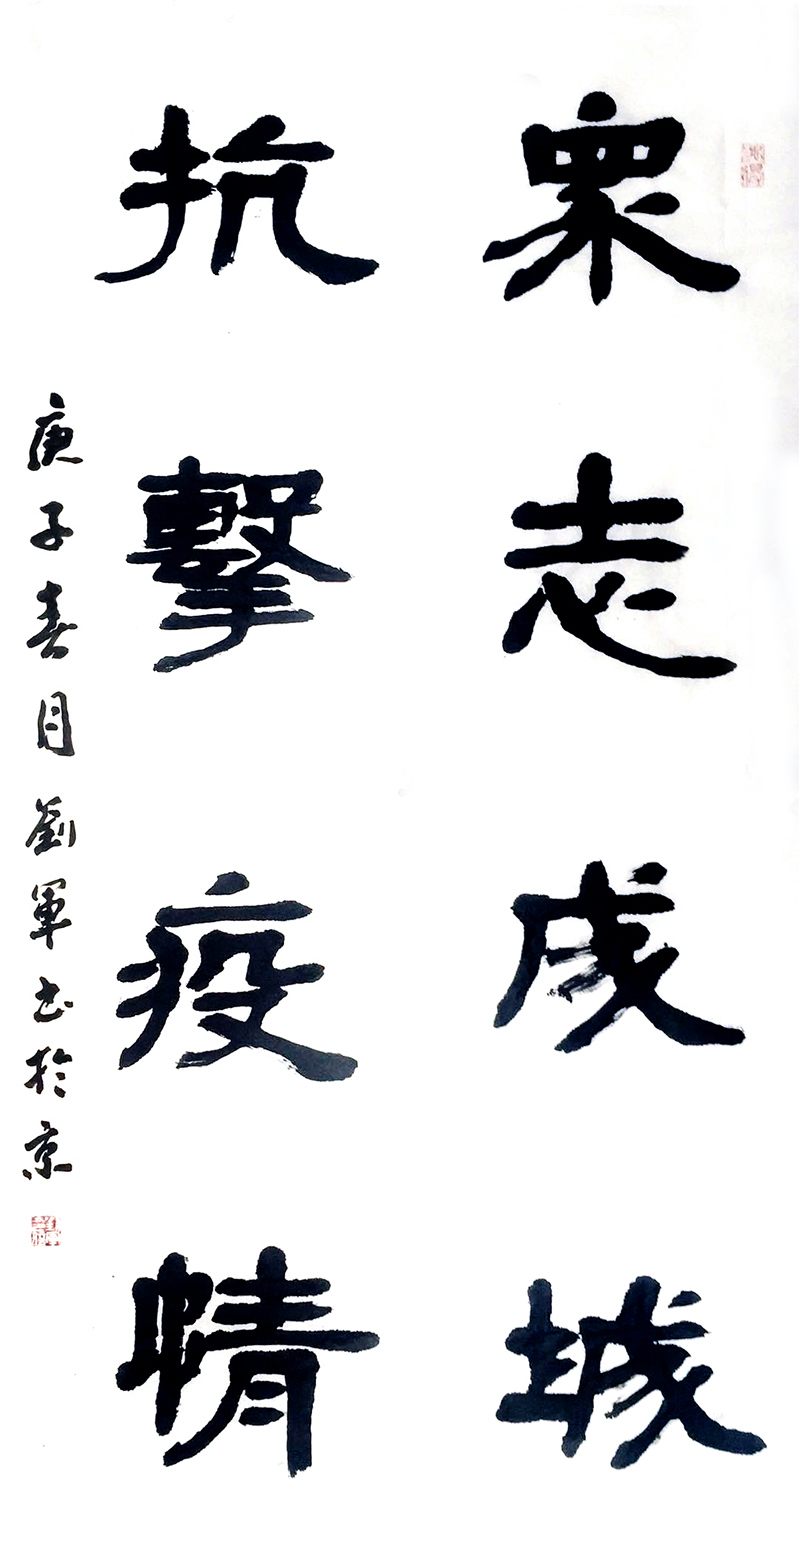 眾志成城
抗擊疫情
庚子春月劉軍书於京